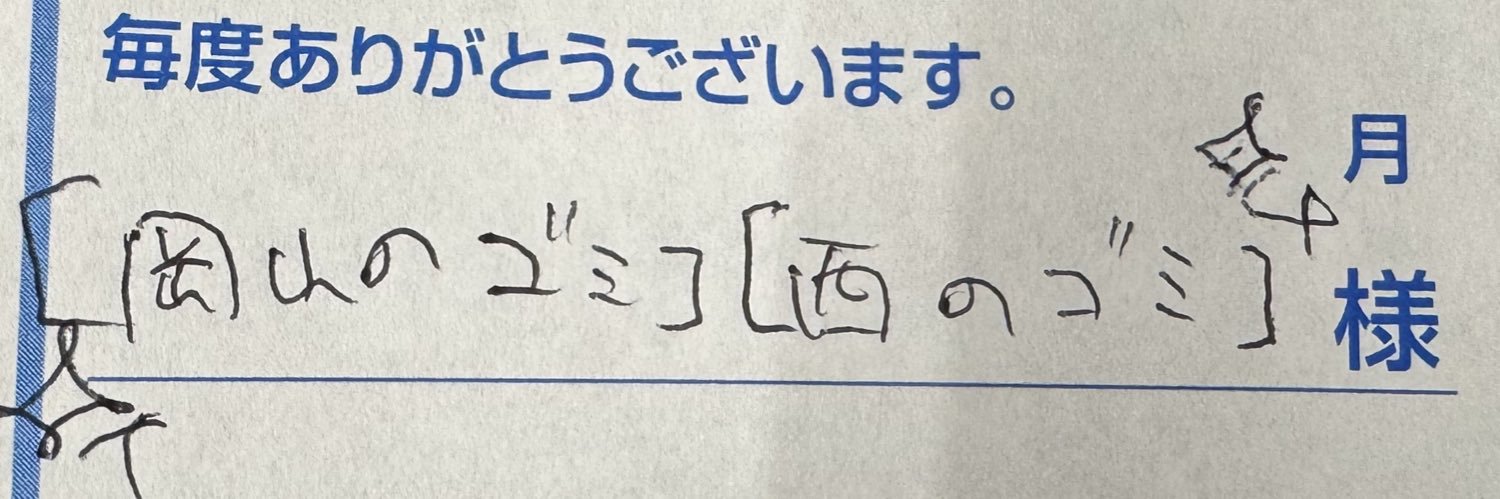 毎度ありがとうございます。
月
[岡山のゴミ][西のゴミ]
様